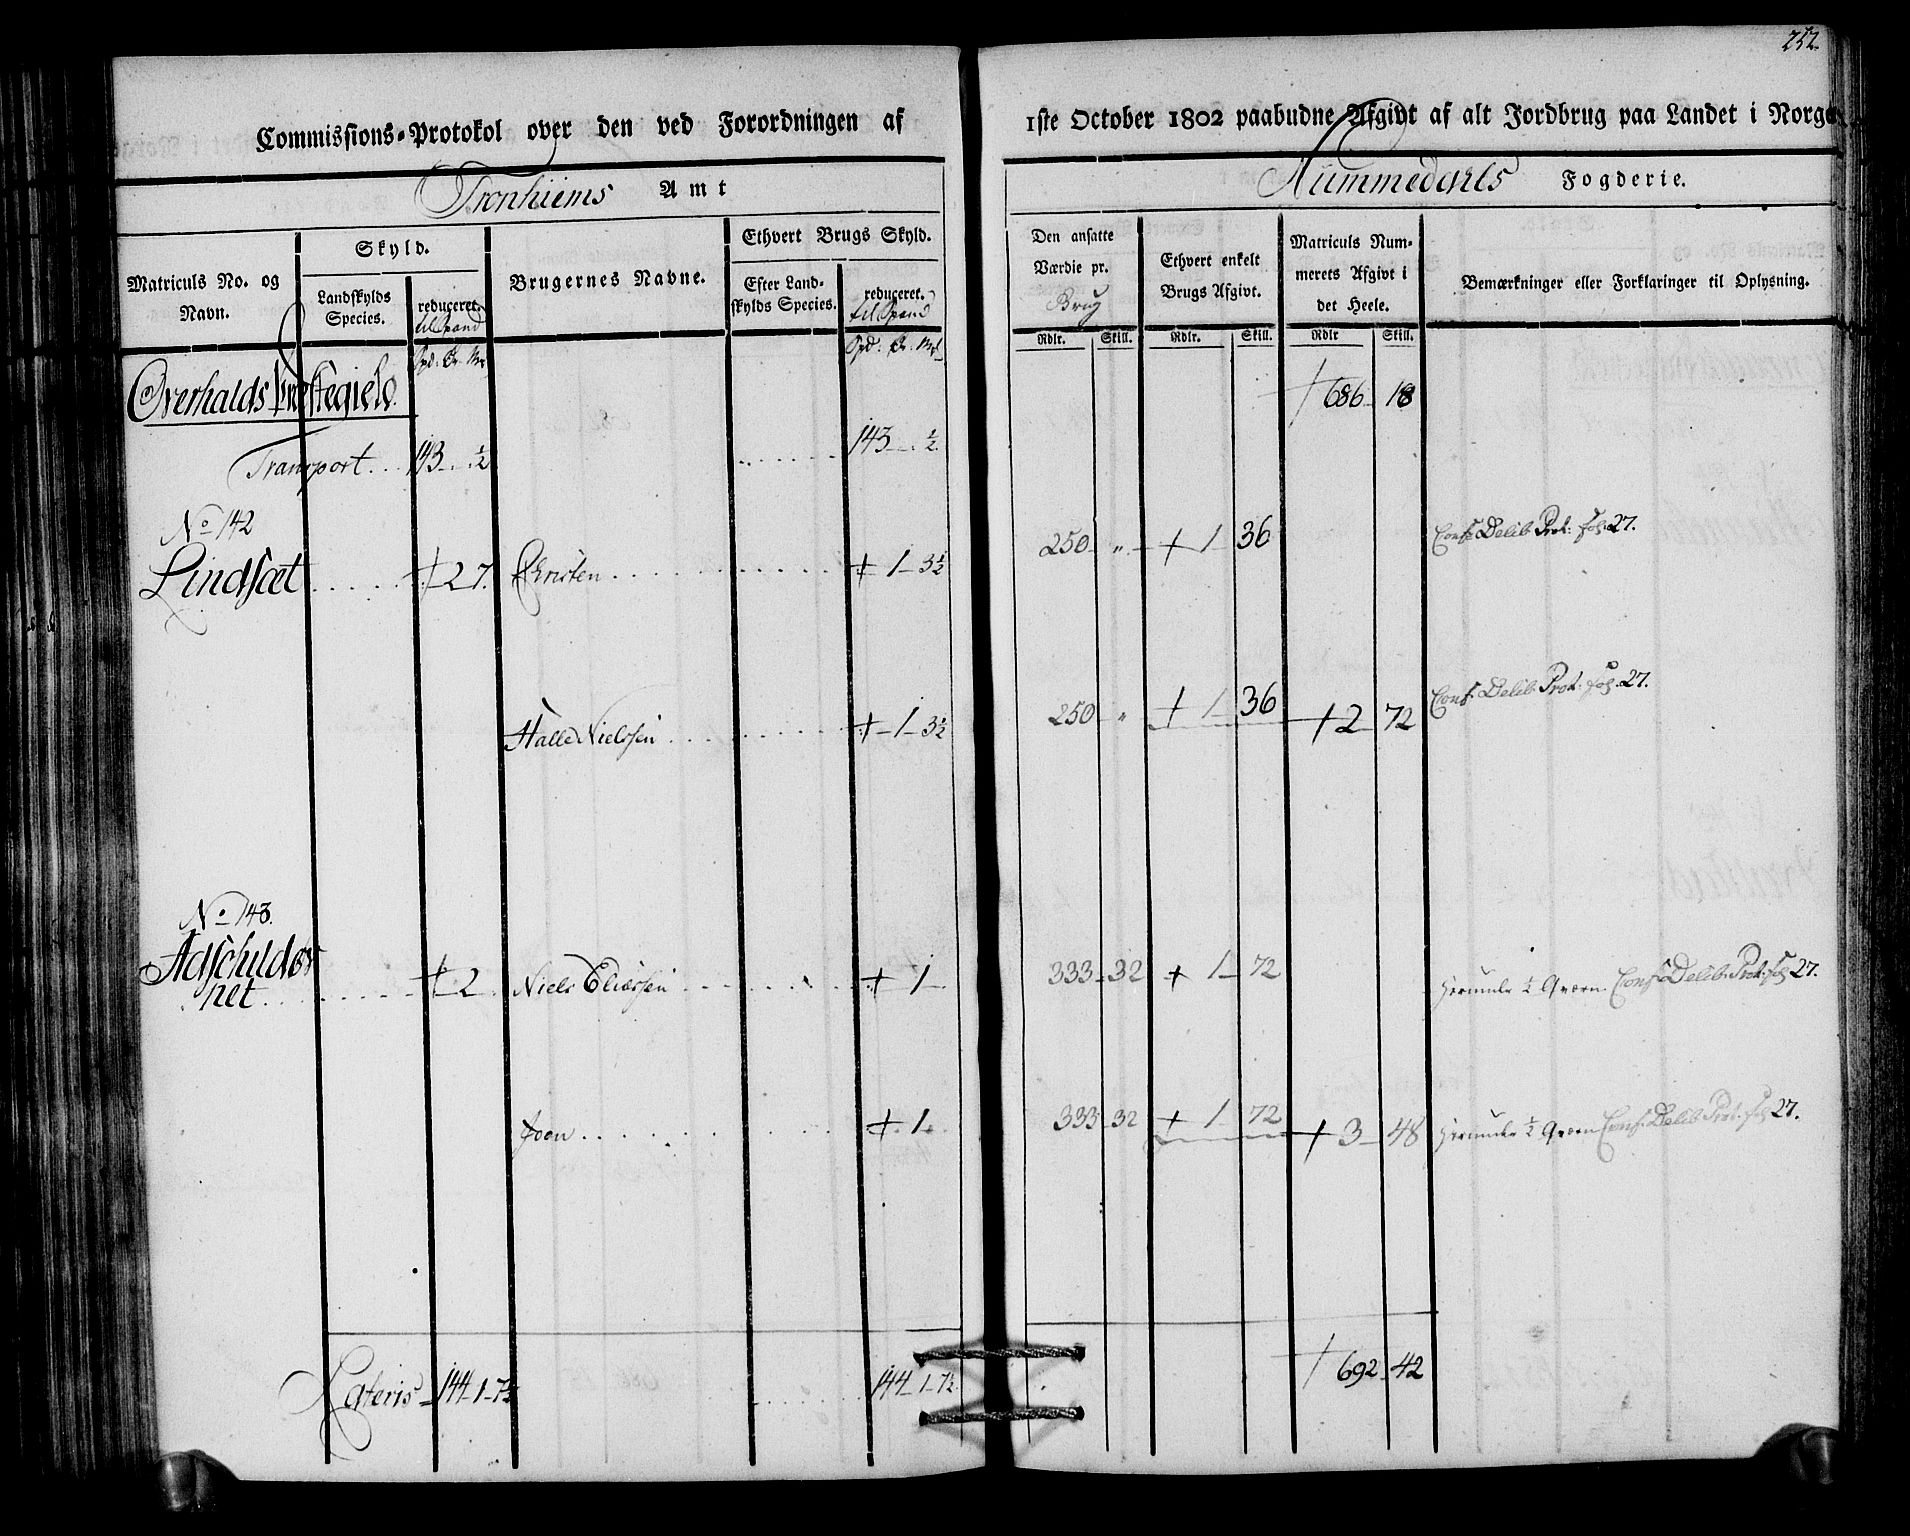 252.
Commissions-Protokol over den ved Forordningen af 1ste October 1802 paabudne Afgivt af alt Jordbrug paa Landet i Norge
Tronhiems Amt
Nummedahls Fogderie.
Matriculs No. og Navn.
Skyld.
Landskylds Species.
reduceret.
til Spand
Brugernes Navne.
Ethvert Brugs Skyld.
Efter Land-
skylds Species.
reduceret.
til Spand
Den ansatte
Værdie pr.
Brug
Ethvert enkelt
Brugs Afgivt.
Matriculs Num-
merets Afgivt i
det Heele.
Bemærkninger eller Forklaringer til Oplysning.
Rdlr. Skill. Rdlr. Skill. Rdlr Skill.
Overhalds Præstegield. + 686 - 18
Transport . . . 143 - . ½ 143 - . ½
No 142
Lindsæt + 2 7. Christen + 1 - 3½ 250 - „ + 1 - 36 Conf. Delib. Prot: fol. 27.
Halle Nielssen + 1 - 3½ 250 - „ + 1 - 36 + 2 - 72 Conf. Delib. Prot: fol. 27.
No 143.
Adschilder
net + 2 Niels Eliassen + 1 - 333 - 32 + 1 - 72 herunder ½ Qværn. Conf. Delib. Prot: fol 27.
Joen + 1. 333 - 32 + 1 - 72 + 3 - 48 herunder ½ Qværn Conf. Delib Prot. fol 27.
Lateris - 144 - 1 - 7½ 144 - 1 - 7½ + 692 - 42